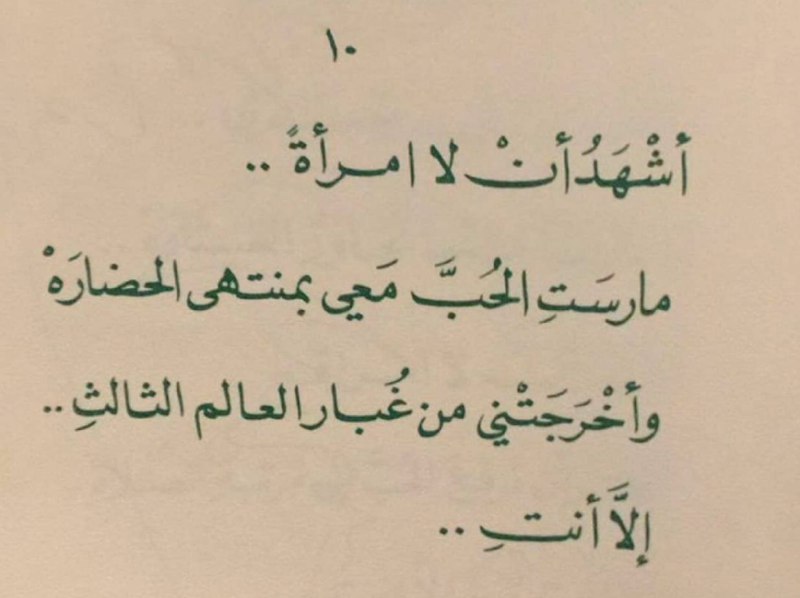 ١٠
أشْهَدُ أنْ لا امرأةً ..
مارسَتِ الحُبَّ مَعي بمنتهى الحضارَهْ
وأخْرَجَتْني من غُبار العالم الثالثِ ..
إلاَّ أنتِ ..